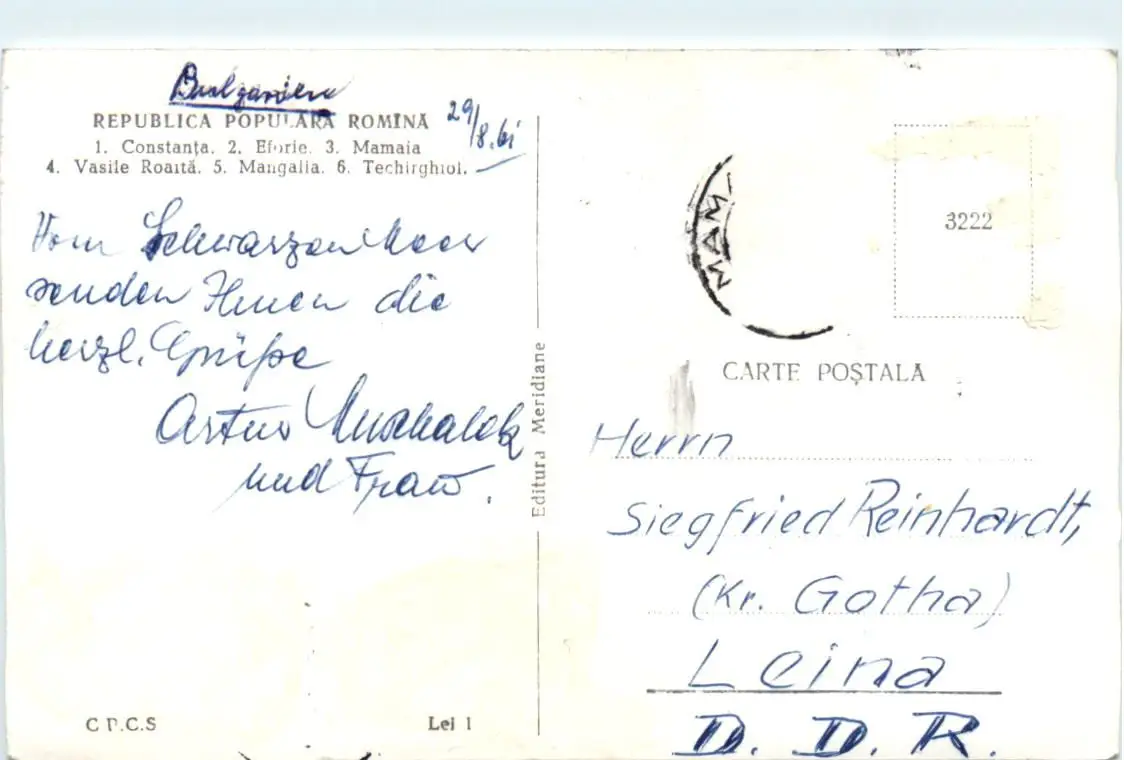 Bulgarien
REPUBLICA POPULARĂ ROMÎNĂ
29/8.61
1. Constanța. 2. Eforie. 3. Mamaia
4. Vasile Roaită. 5. Mangalia. 6. Techirghiol.
Vom Schwarzen Meer
senden Ihnen die
herzl. Grüße
Artur
und Frau.
Editura Meridiane
C.P.C.S
Lei 1
MAM
3222
CARTE POȘTALĂ
Herrn
Siegfried Reinhardt,
(Kr. Gotha)
Leina
D. D. R.